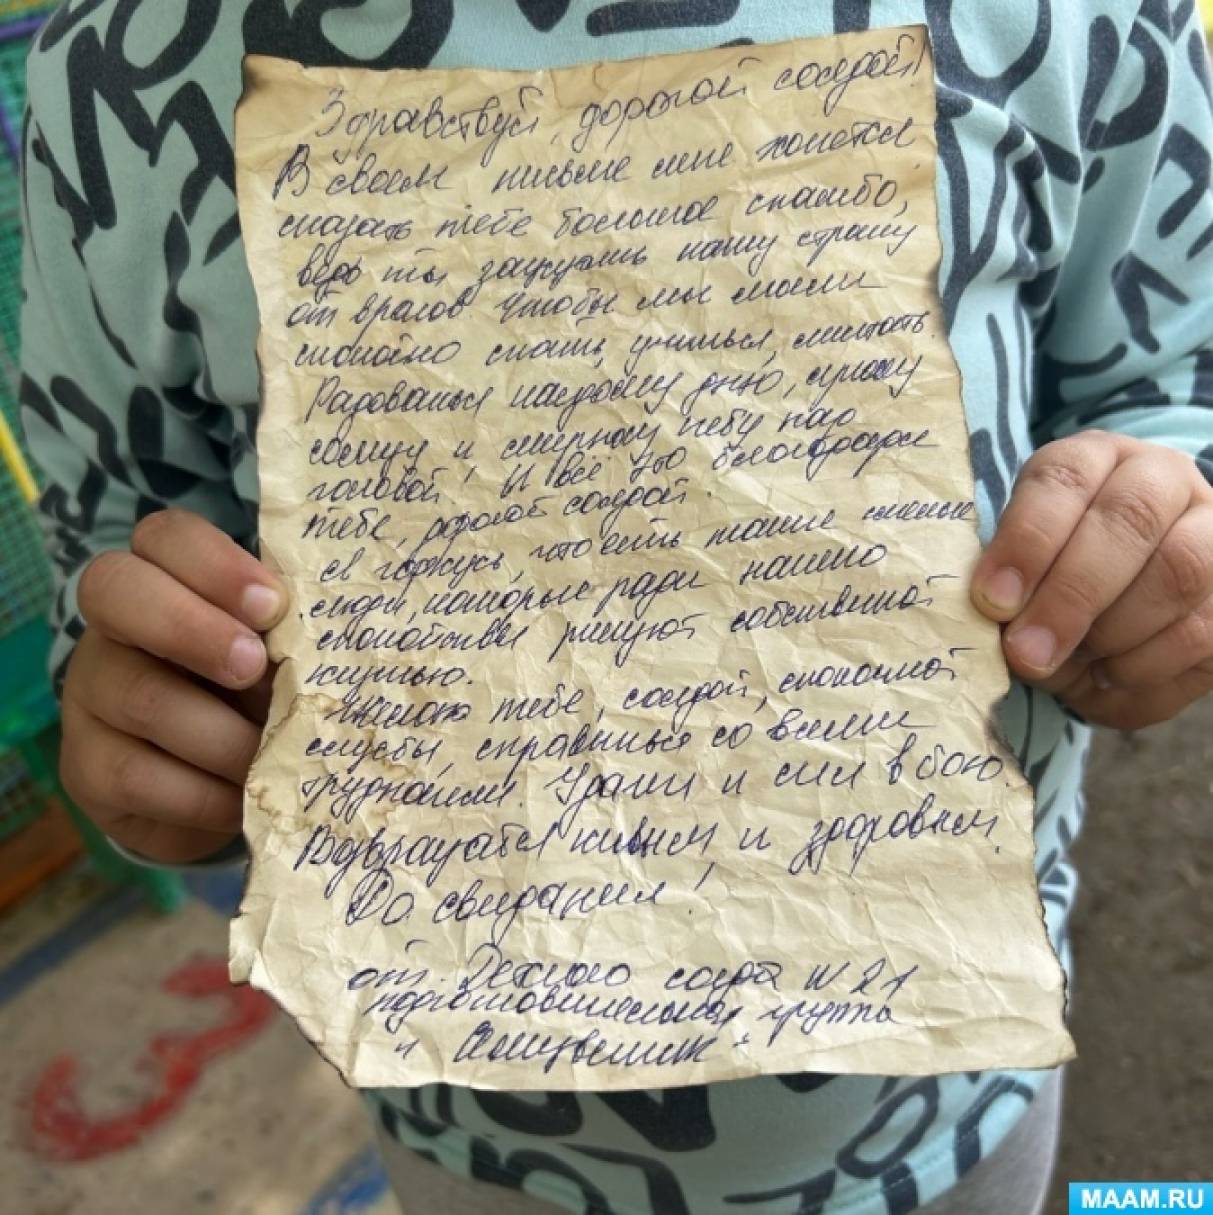 Здравствуй, дорогой солдат!
В своем письме мне хочется
сказать тебе большое спасибо,
ведь ты защищаешь нашу страну
от врагов. Чтобы мы могли
спокойно спать, учиться, мечтать.
Радоваться каждому дню, яркому
солнцу и мирному небу над
головой. И всё это благодаря
тебе, дорогой солдат.
Я горжусь, что есть такие смелые
люди, которые ради нашего
спокойствия рискуют собственной
жизнью.
Желаю тебе, солдат, спокойной
службы, справиться со всеми
трудностями. Удачи и сил в бою.
Возвращайся живым и здоровым.
До свидания!
от Детского сада № 21
подготовительная группа
"Семицветик"
MAAM.RU